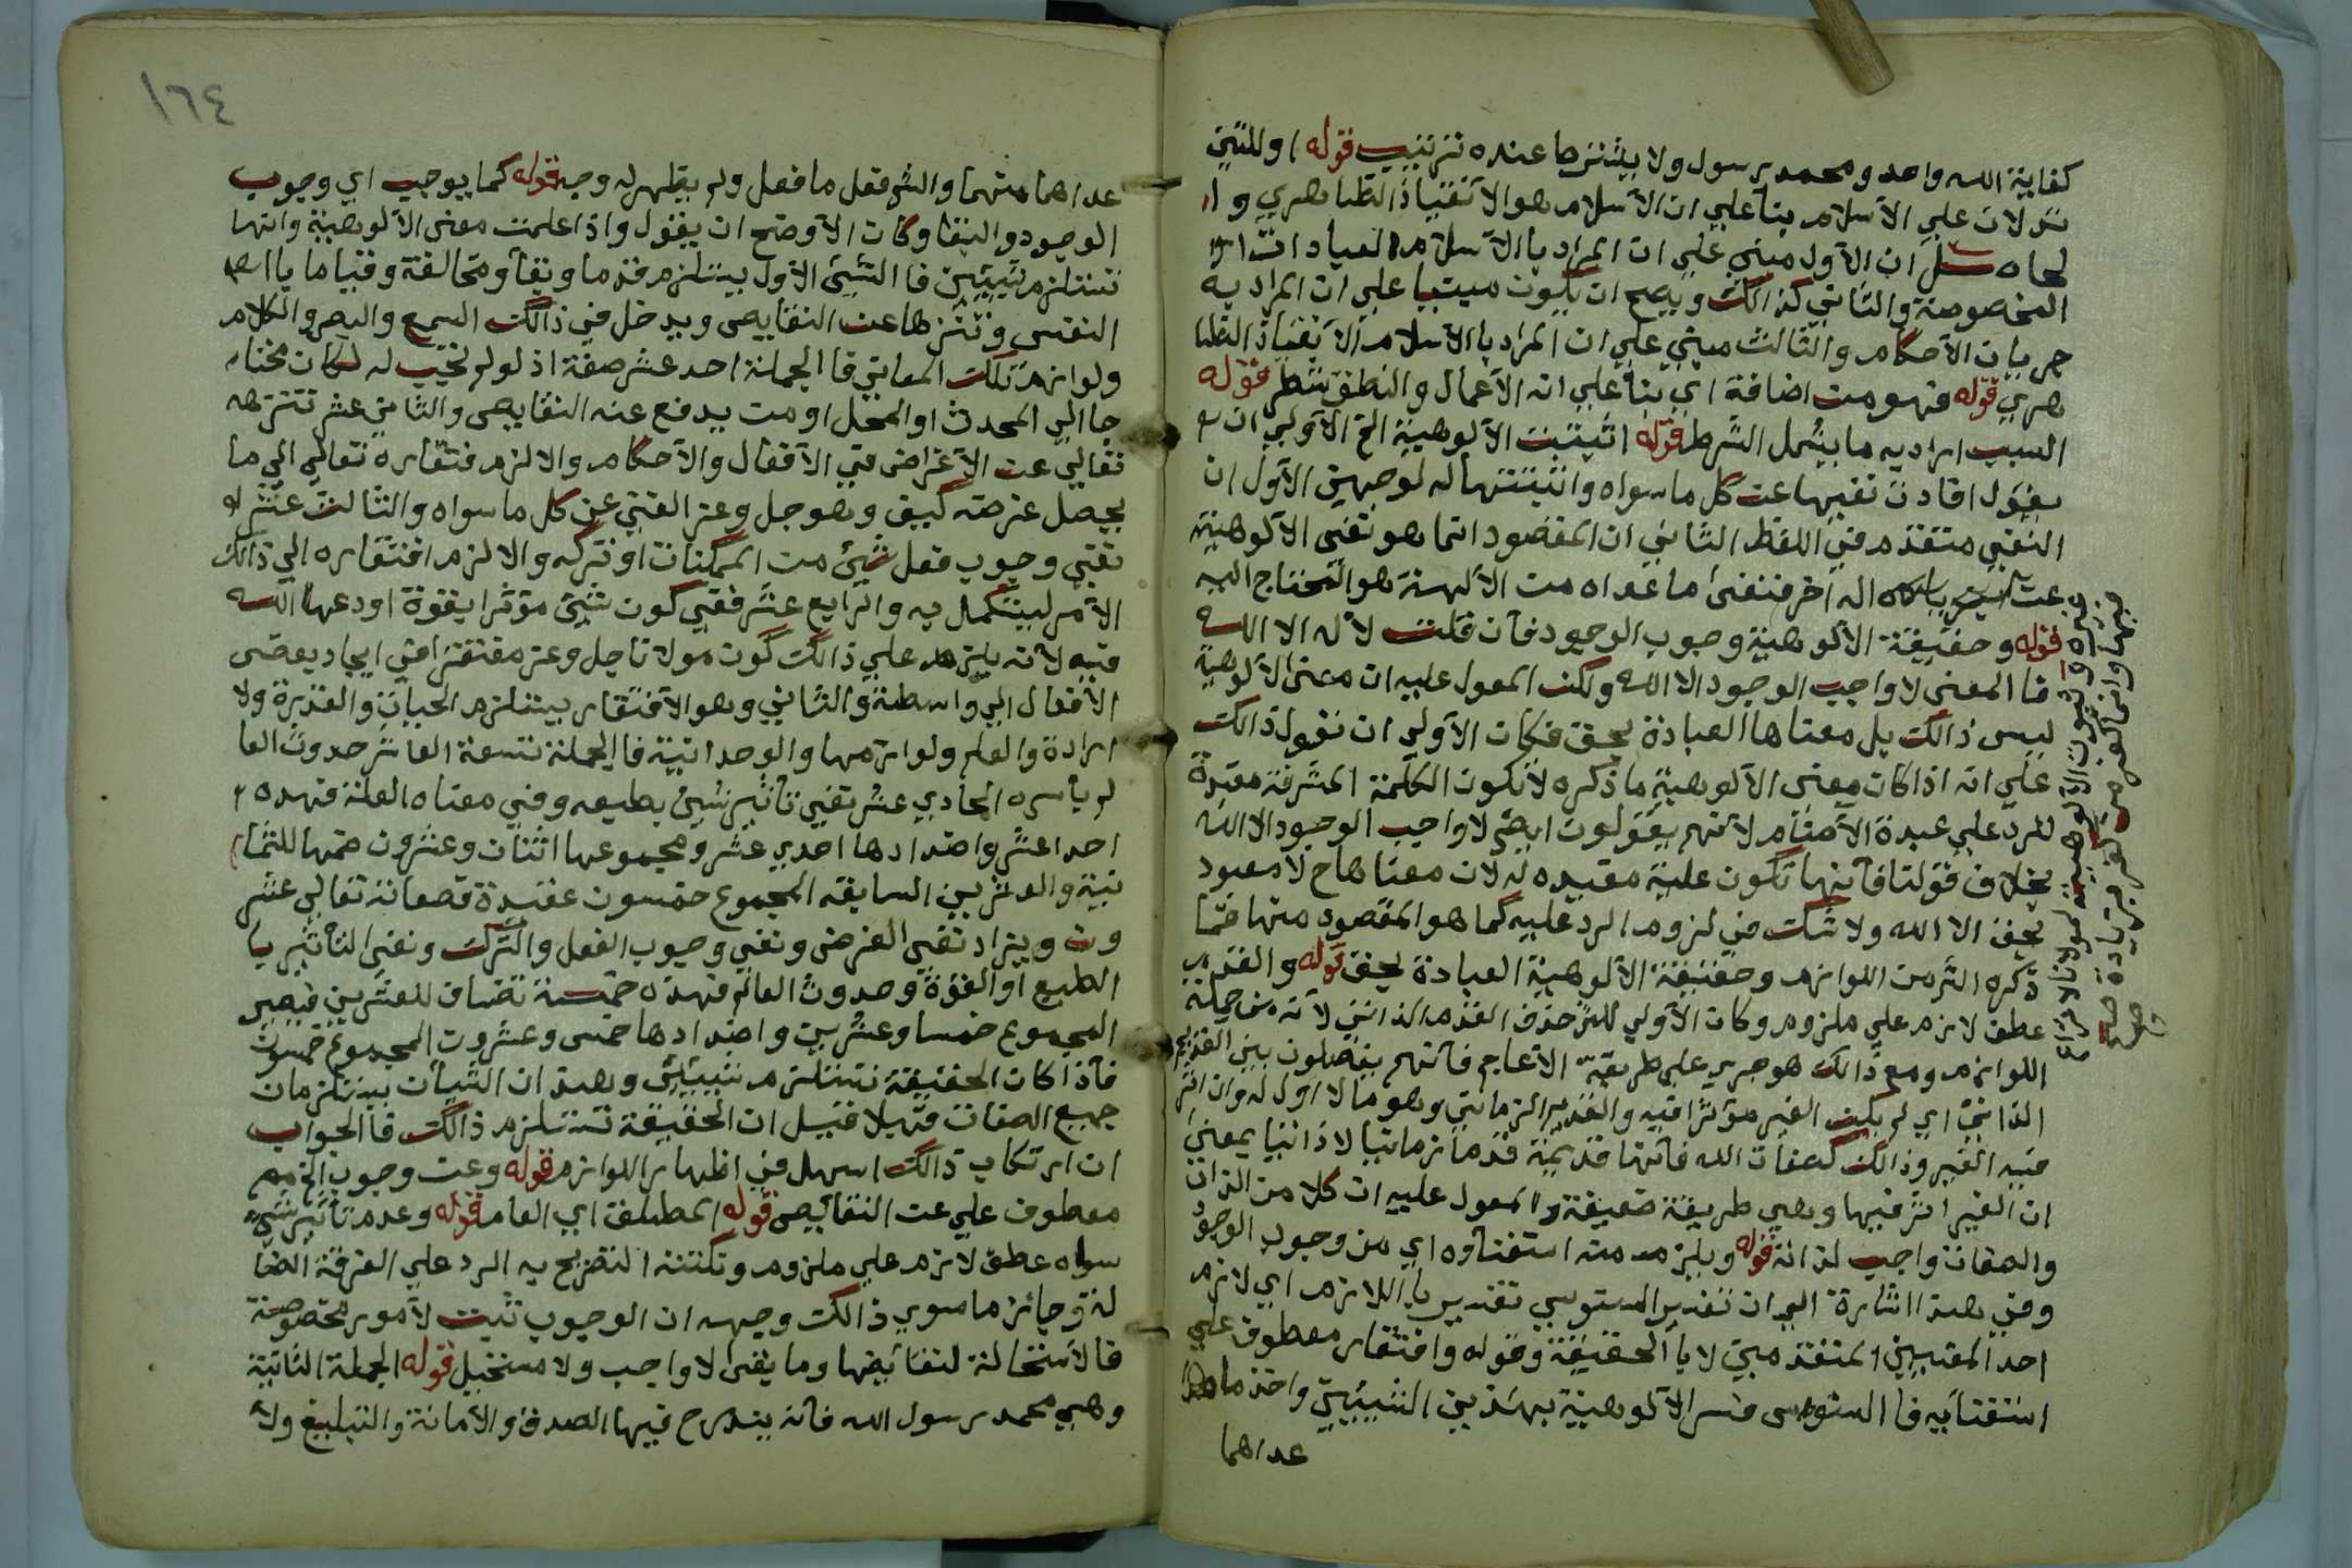 كفاية الله واحد ومحمد رسول ولا يشترط عنده ترتيب قوله اوللتين
تدلان علي الاسلام بنأ علي ان الاسلام هو الانقياد الظاهري و
ان الاول مبني علي ان المراد بالاسلام العبادات
المخصوصة والثاني كذالك ويصح ان يكون مبنيا علي ان المراد به
جريان الاحكام والثالث مبني علي ان المراد بالاسلام الانقياد الظا
هري قوله فهو من اضافة اي بنأ علي ان الاعمال والنطق شطر قوله
السبب اراد به ما يشمل الشرط قوله اثبتت الالوهية الخ الاولي ان
يقول افادت نفيها عن كل ما سواه واثبتتها له لوجهين الاول ان
النفي متقدم في اللفظ الثاني ان المقصود انما هو نفي الالوهية
عن اله اخر فنفي ما عداه من الالهة هو المحتاج اليه
قوله وحقيقة الالوهية وجوب الوجود فان قلت لا اله الا الله
فا المعني لا واجب الوجود الا الله ولكن المعول عليه ان معني الالوهية
ليس ذالك بل معناها العبادة بحق فكان الاولي ان نقول ذالك
علي انه اذا كان معني الالوهية ما ذكره لا تكون الكلمة المشرفة مفيدة
للرد علي عبدة الاصنام لانهم يقولون ايضا لا واجب الوجود الا الله
بخلاف قولنا فانها تكون عليه مفيده له لان معناها ح لا معبود
بحق الا الله ولا شك في لزوم الرد عليه كما هو المقصود منها فما
ذكره الشر من اللوازم وحقيقة الالوهية العبادة بحق قوله والقدم
عطف لازم علي ملزوم وكان الاولي للشر حذف القدم الذاتي لانه من جملة
اللوازم ومع ذالك هو جري علي طريقة الاعاجم فانهم يفصلون بين القديم
الذاتي اي لم يكن الغير مؤثرا فيه والقديم الزماني وهو ما لا اول له وان اثر
فيه الغير وذالك كصفات الله فانها قديمة قدما زمانيا لا ذاتيا بمعني
ان الغير اثر فيها وهي طريقة ضعيفة والمعول عليه ان كلا من الذات
والصفات واجب لذاته قوله ويلزم منه استغناؤه اي من وجوب الوجود
وفي هذا اشارة الي ان تفسير السنوسي تفسير باللازم اي لازم
احد المعنيين المتقدمين لا بالحقيقة وقوله وافتقار معطوف علي
استغنايه فا السنوسي فسر الالوهية بهذين الشيئين واخذ ما
عداهما
١٦٤
عداهما منهما والشر فعل ما فعل ولم يظهر له وجه قوله كما يوجب اي وجوب
الوجود والبقا وكان الاوضح ان يقول واذا علمت معني الالوهية وانها
تستلزم شيئين فا الشيئ الاول يستلزم قدما وبقأ ومخالفة وقياما با
النفس وتنزها عن النقايص ويدخل في ذالك السمع والبصر والكلام
ولوازم تلك المعاني فا الجملة احد عشر صفة اذ لو لم تجب له لكان محتا
جا الي المحدث او المحل او من يدفع عنه النقايص والثاني عشر تنزهه
تعالي عن الاغراض في الافعال والاحكام والا لزم افتقاره تعالي الي ما
يحصل غرضه كيف وهو جل وعز الغني عن كل ما سواه والثالث عشر
نفي وجوب فعل شيئ من الممكنات او تركه والا لزم افتقاره الي ذالك
الامر ليتكمل به والرابع عشر نفي كون شيئ مؤثرا بقوة اودعها الله
فيه لانه يلزم علي ذالك كون مولانا جل وعز مفتقرا في ايجاد بعض
الافعال الي واسطة والثاني وهو الافتقار يستلزم الحياة والقدرة والا
رادة والعلم ولوازمها والوحدانية فا الجملة تسعة العاشر حدوث العا
لم باسره الحادي عشر نفي تأثير شيئ بطبعه وفي معناه العلة فهذه
احدا عشر واضدادها احدي عشر ومجموعها اثنان وعشرون ضمها للثما
نية والعشرين السابقه المجموع خمسون عقيدة فصفاته تعالي عشر
ون ويزاد نفي الغرض ونفي وجوب الفعل والترك ونفي التأثير با
الطبع او القوة وحدوث العالم فهذه خمسة تضاف للعشرين فيصير
المجموع خمسا وعشرين واضدادها خمس وعشرون المجموع خمسون
فأذا كان الحقيقة تستلزم شيئين وهذان الشيأن يستلزمان
جميع الصفات فهلا قيل ان الحقيقة تستلزم ذالك فا الجواب
ان ارتكاب ذالك اسهل في اظهار اللوازم قوله وعن وجوب الخ
معطوف علي عن النقايص قوله المطلق اي العام قوله وعدم تأثير شيئ
سواه عطف لازم علي ملزوم ونكتته التصريح به الرد علي الفرقة الضا
لة وجائز ما سوي ذالك وجهه ان الوجوب ثبت لامور مخصوصة
فا الاستحالة لنقايضها وما بقي لا واجب ولا مستحيل قوله الجملة الثانية
وهي محمد رسول الله فانه يندرج فيها الصدق والامانة والتبليغ ولا